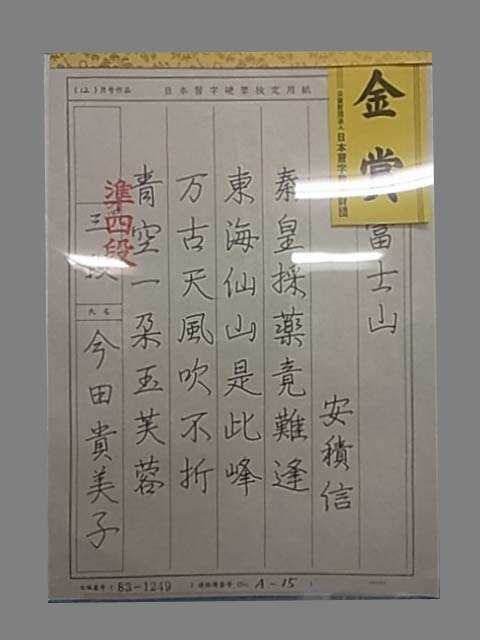 (12)月号作品
日本習字硬筆検定用紙
金賞
公益財団法人 日本習字
財団
富士山
安積信
秦皇採藥竟難逢
東海仙山是此峰
万古天風吹不折
青空一朶玉芙蓉
準四段
三段
氏名
今田貴美子
83-1249
A-15